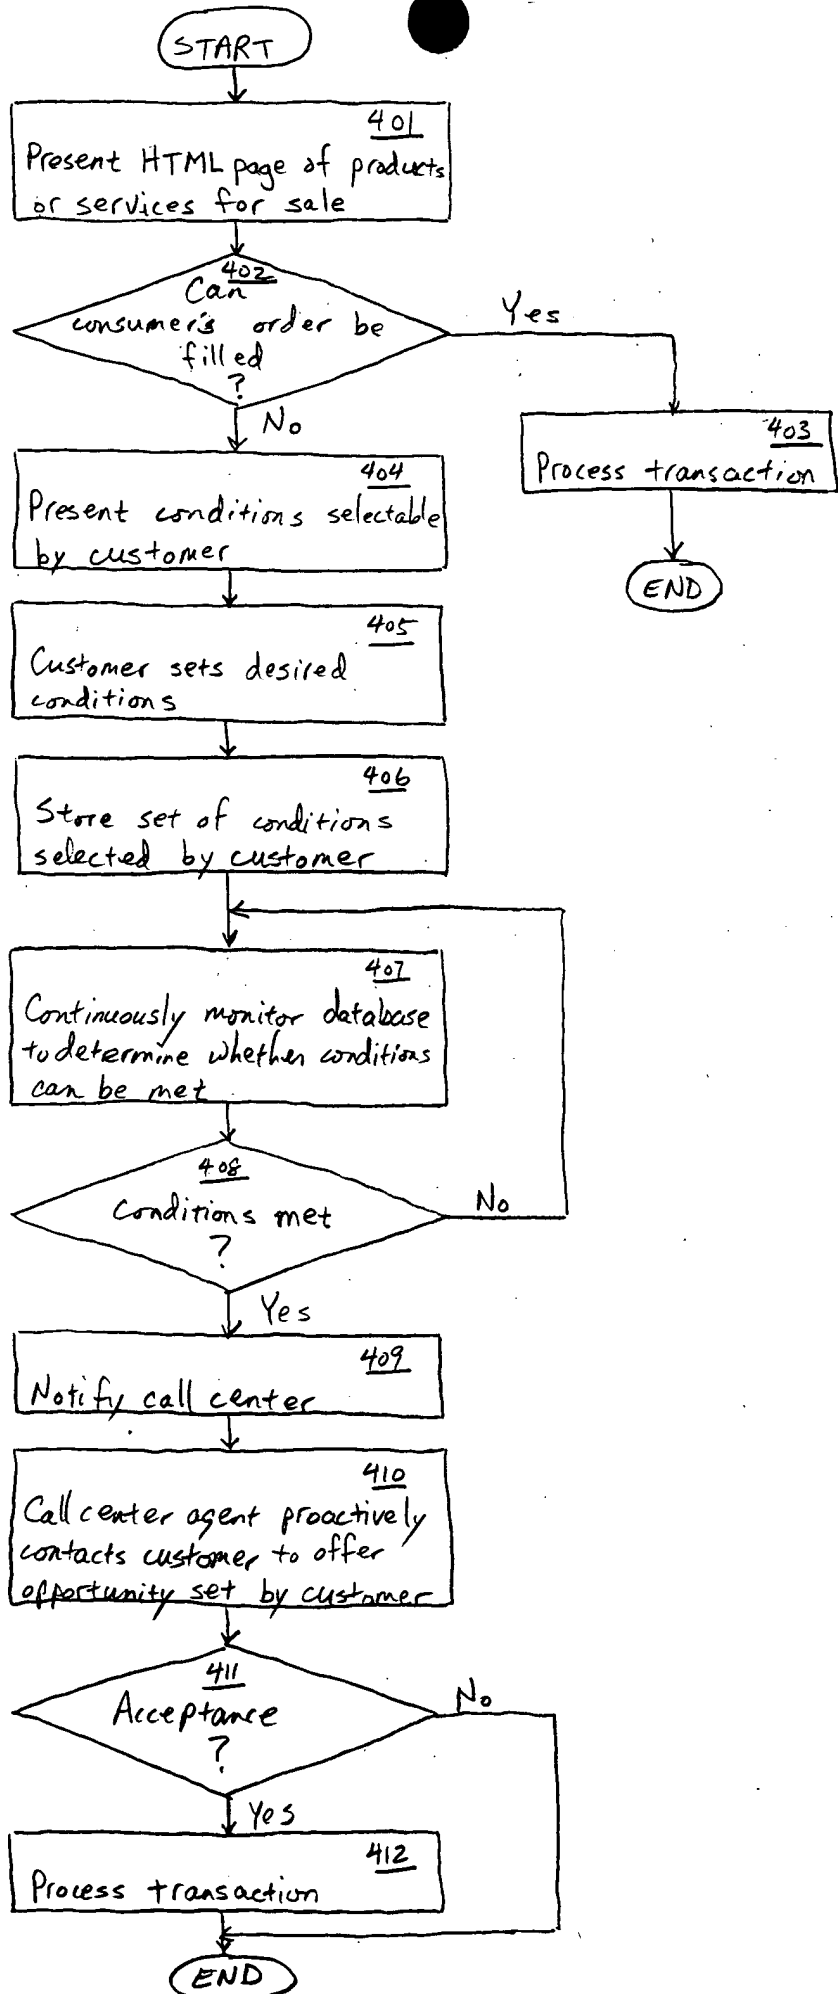 START
401
Present HTML page of products
or services for sale
402
Can
consumer's order be
filled
?
Yes
No
403
Process transaction
END
404
Present conditions selectable
by customer
405
Customer sets desired
conditions
406
Store set of conditions
selected by customer
407
Continuously monitor database
to determine whether conditions
can be met
408
Conditions met
?
No
Yes
409
Notify call center
410
Call center agent proactively
contacts customer to offer
opportunity set by customer
411
Acceptance
?
No
Yes
412
Process transaction
END